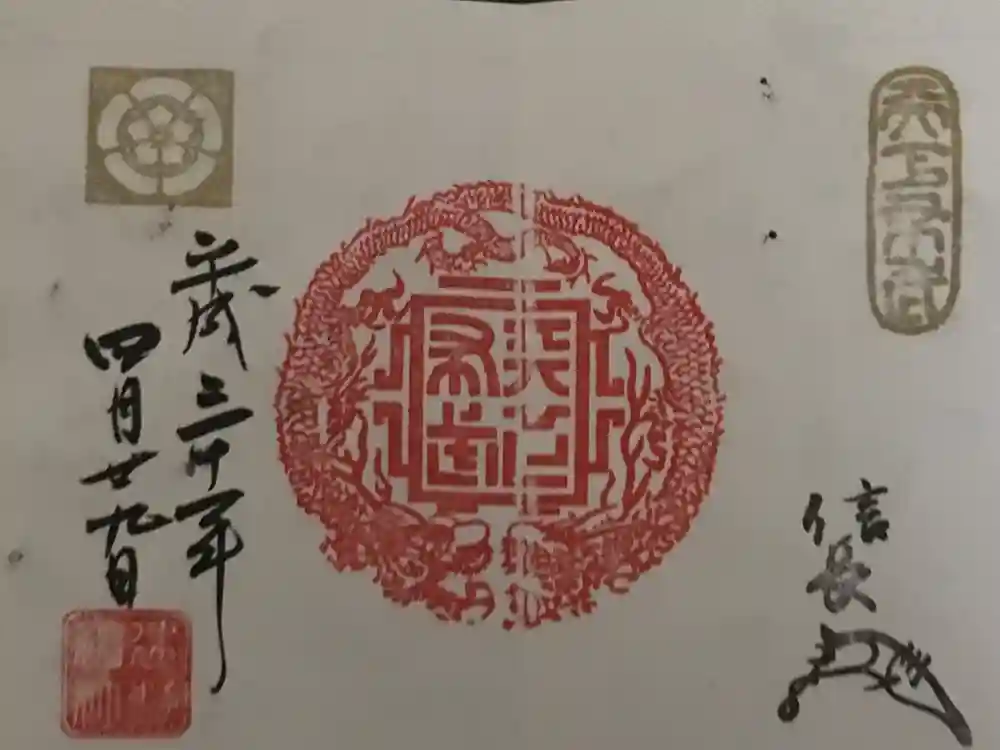 天下布武
信長
天下
布武
平成三十年
四月廿九日